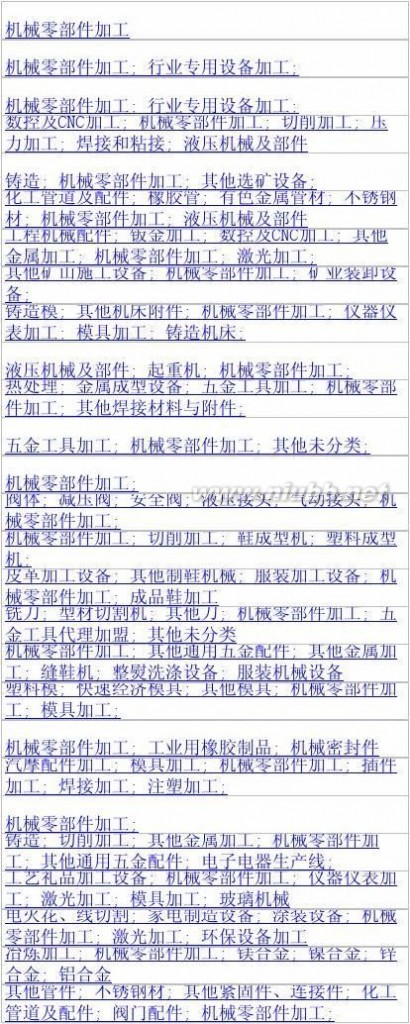 机械零部件加工
机械零部件加工; 行业专用设备加工;
机械零部件加工; 行业专用设备加工;
数控及CNC加工; 机械零部件加工; 切削加工; 压
力加工; 焊接和粘接; 液压机械及部件
铸造; 机械零部件加工; 其他选矿设备;
化工管道及配件; 橡胶管; 有色金属管材; 不锈钢
材; 机械零部件加工; 液压机械及部件
工程机械配件; 钣金加工; 数控及CNC加工; 其他
金属加工; 机械零部件加工; 激光加工;
其他矿山施工设备; 机械零部件加工; 矿业装卸设
备;
铸造模; 其他机床附件; 机械零部件加工; 仪器仪
表加工; 模具加工; 铸造机床;
液压机械及部件; 起重机; 机械零部件加工;
热处理; 金属成型设备; 五金工具加工; 机械零部
件加工; 其他焊接材料与附件;
五金工具加工; 机械零部件加工; 其他未分类;
机械零部件加工;
阀体; 减压阀; 安全阀; 液压接头; 气动接头; 机
械零部件加工;
www.niubb.net
机械零部件加工; 切削加工; 鞋成型机; 塑料成型
机;
皮革加工设备; 其他制鞋机械; 服装加工设备; 机
械零部件加工; 成品鞋加工
铣刀; 型材切割机; 其他刀; 机械零部件加工; 五
金工具代理加盟; 其他未分类
机械零部件加工; 其他通用五金配件; 其他金属加
工; 缝鞋机; 整熨洗涤设备; 服装机械设备
塑料模; 快速经济模具; 其他模具; 机械零部件加
工; 模具加工;
机械零部件加工; 工业用橡胶制品; 机械密封件
汽摩配件加工; 模具加工; 机械零部件加工; 插件
加工; 焊接加工; 注塑加工;
机械零部件加工;
铸造; 切削加工; 其他金属加工; 机械零部件加
工; 其他通用五金配件; 电子电器生产线;
工艺礼品加工设备; 机械零部件加工; 仪器仪表加
工; 激光加工; 模具加工; 玻璃机械
电火花、线切割; 家电制造设备; 涂装设备; 机械
零部件加工; 激光加工; 环保设备加工
冶炼加工; 机械零部件加工; 镁合金; 镍合金; 锌
合金; 铝合金
其他管件; 不锈钢材; 其他紧固件、连接件; 化工
管道及配件; 阀门配件; 机械零部件加工;